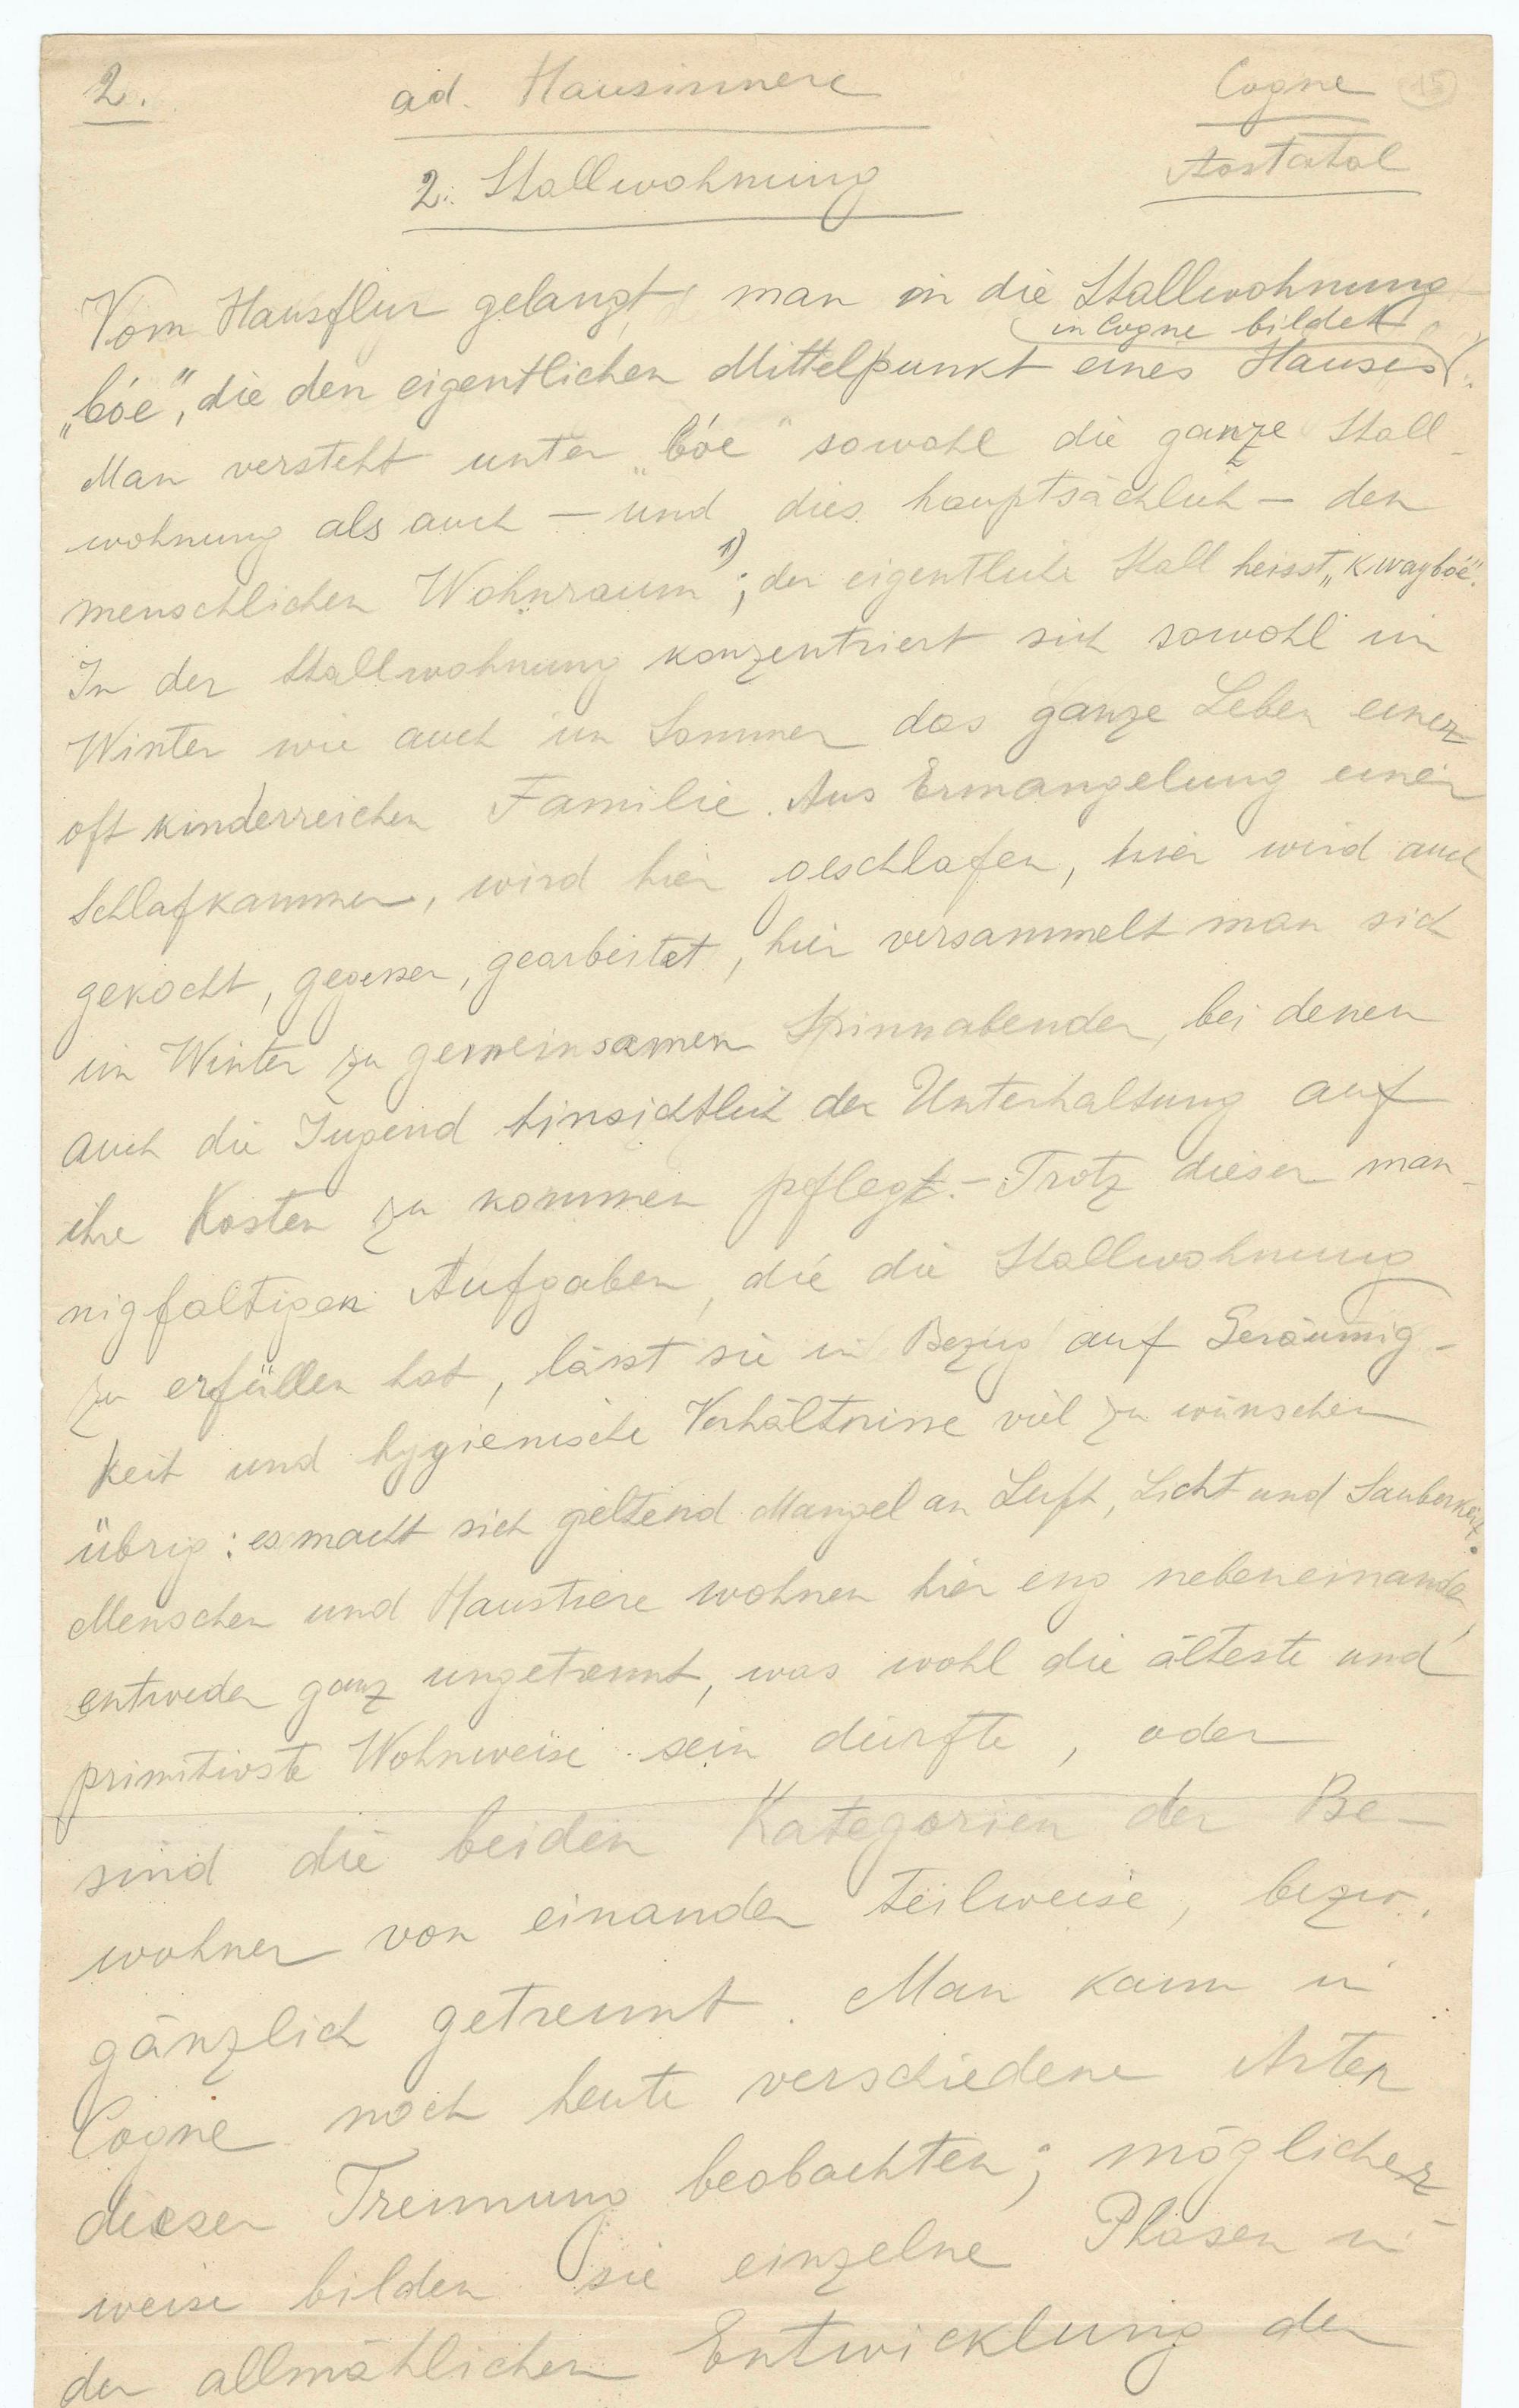 2. ad. Hausinnere Cogne 15
2. Stallwohnung Aostatal
Vom Hausflur gelangt man in die Stallwohnung
in Cogne bildet
„bóe", die den eigentlichen Mittelpunkt eines Hauses.
Man versteht unter „bóe" sowohl die ganze Stall-
wohnung als auch – und dies hauptsächlich – den
menschlichen Wohnraum 1); der eigentliche Stall heisst „kwaybóe".
In der Stallwohnung konzentriert sich sowohl im
Winter wie auch im Sommer das ganze Leben einer
oft kinderreichen Familie. Aus Ermangelung einer
Schlafkammer, wird hier geschlafen, hier wird auch
gekocht, gegessen, gearbeitet, hier versammelt man sich
im Winter zu gemeinsamen Spinnabenden, bei denen
auch die Jugend hinsichtlich der Unterhaltung auf
ihre Kosten zu kommen pflegt. – Trotz dieser man-
nigfaltigen Aufgaben, die die Stallwohnung
zu erfüllen hat, lässt sie in Bezug auf Geräumig-
keit und hygienische Verhältnisse viel zu wünschen
übrig: es macht sich geltend Mangel an Luft, Licht und Sauberkeit.
Menschen und Haustiere wohnen hier eng nebeneinander,
entweder ganz ungetrennt, was wohl die älteste und
primitivste Wohnweise sein dürfte, oder
sind die beiden Kategorien der Be-
wohner von einander teilweise, bezw.
gänzlich getrennt. Man kann in
Cogne noch heute verschiedene Arten
dieser Trennung beobachten; möglicher-
weise bilden sie einzelne Phasen in
der allmählichen Entwicklung der